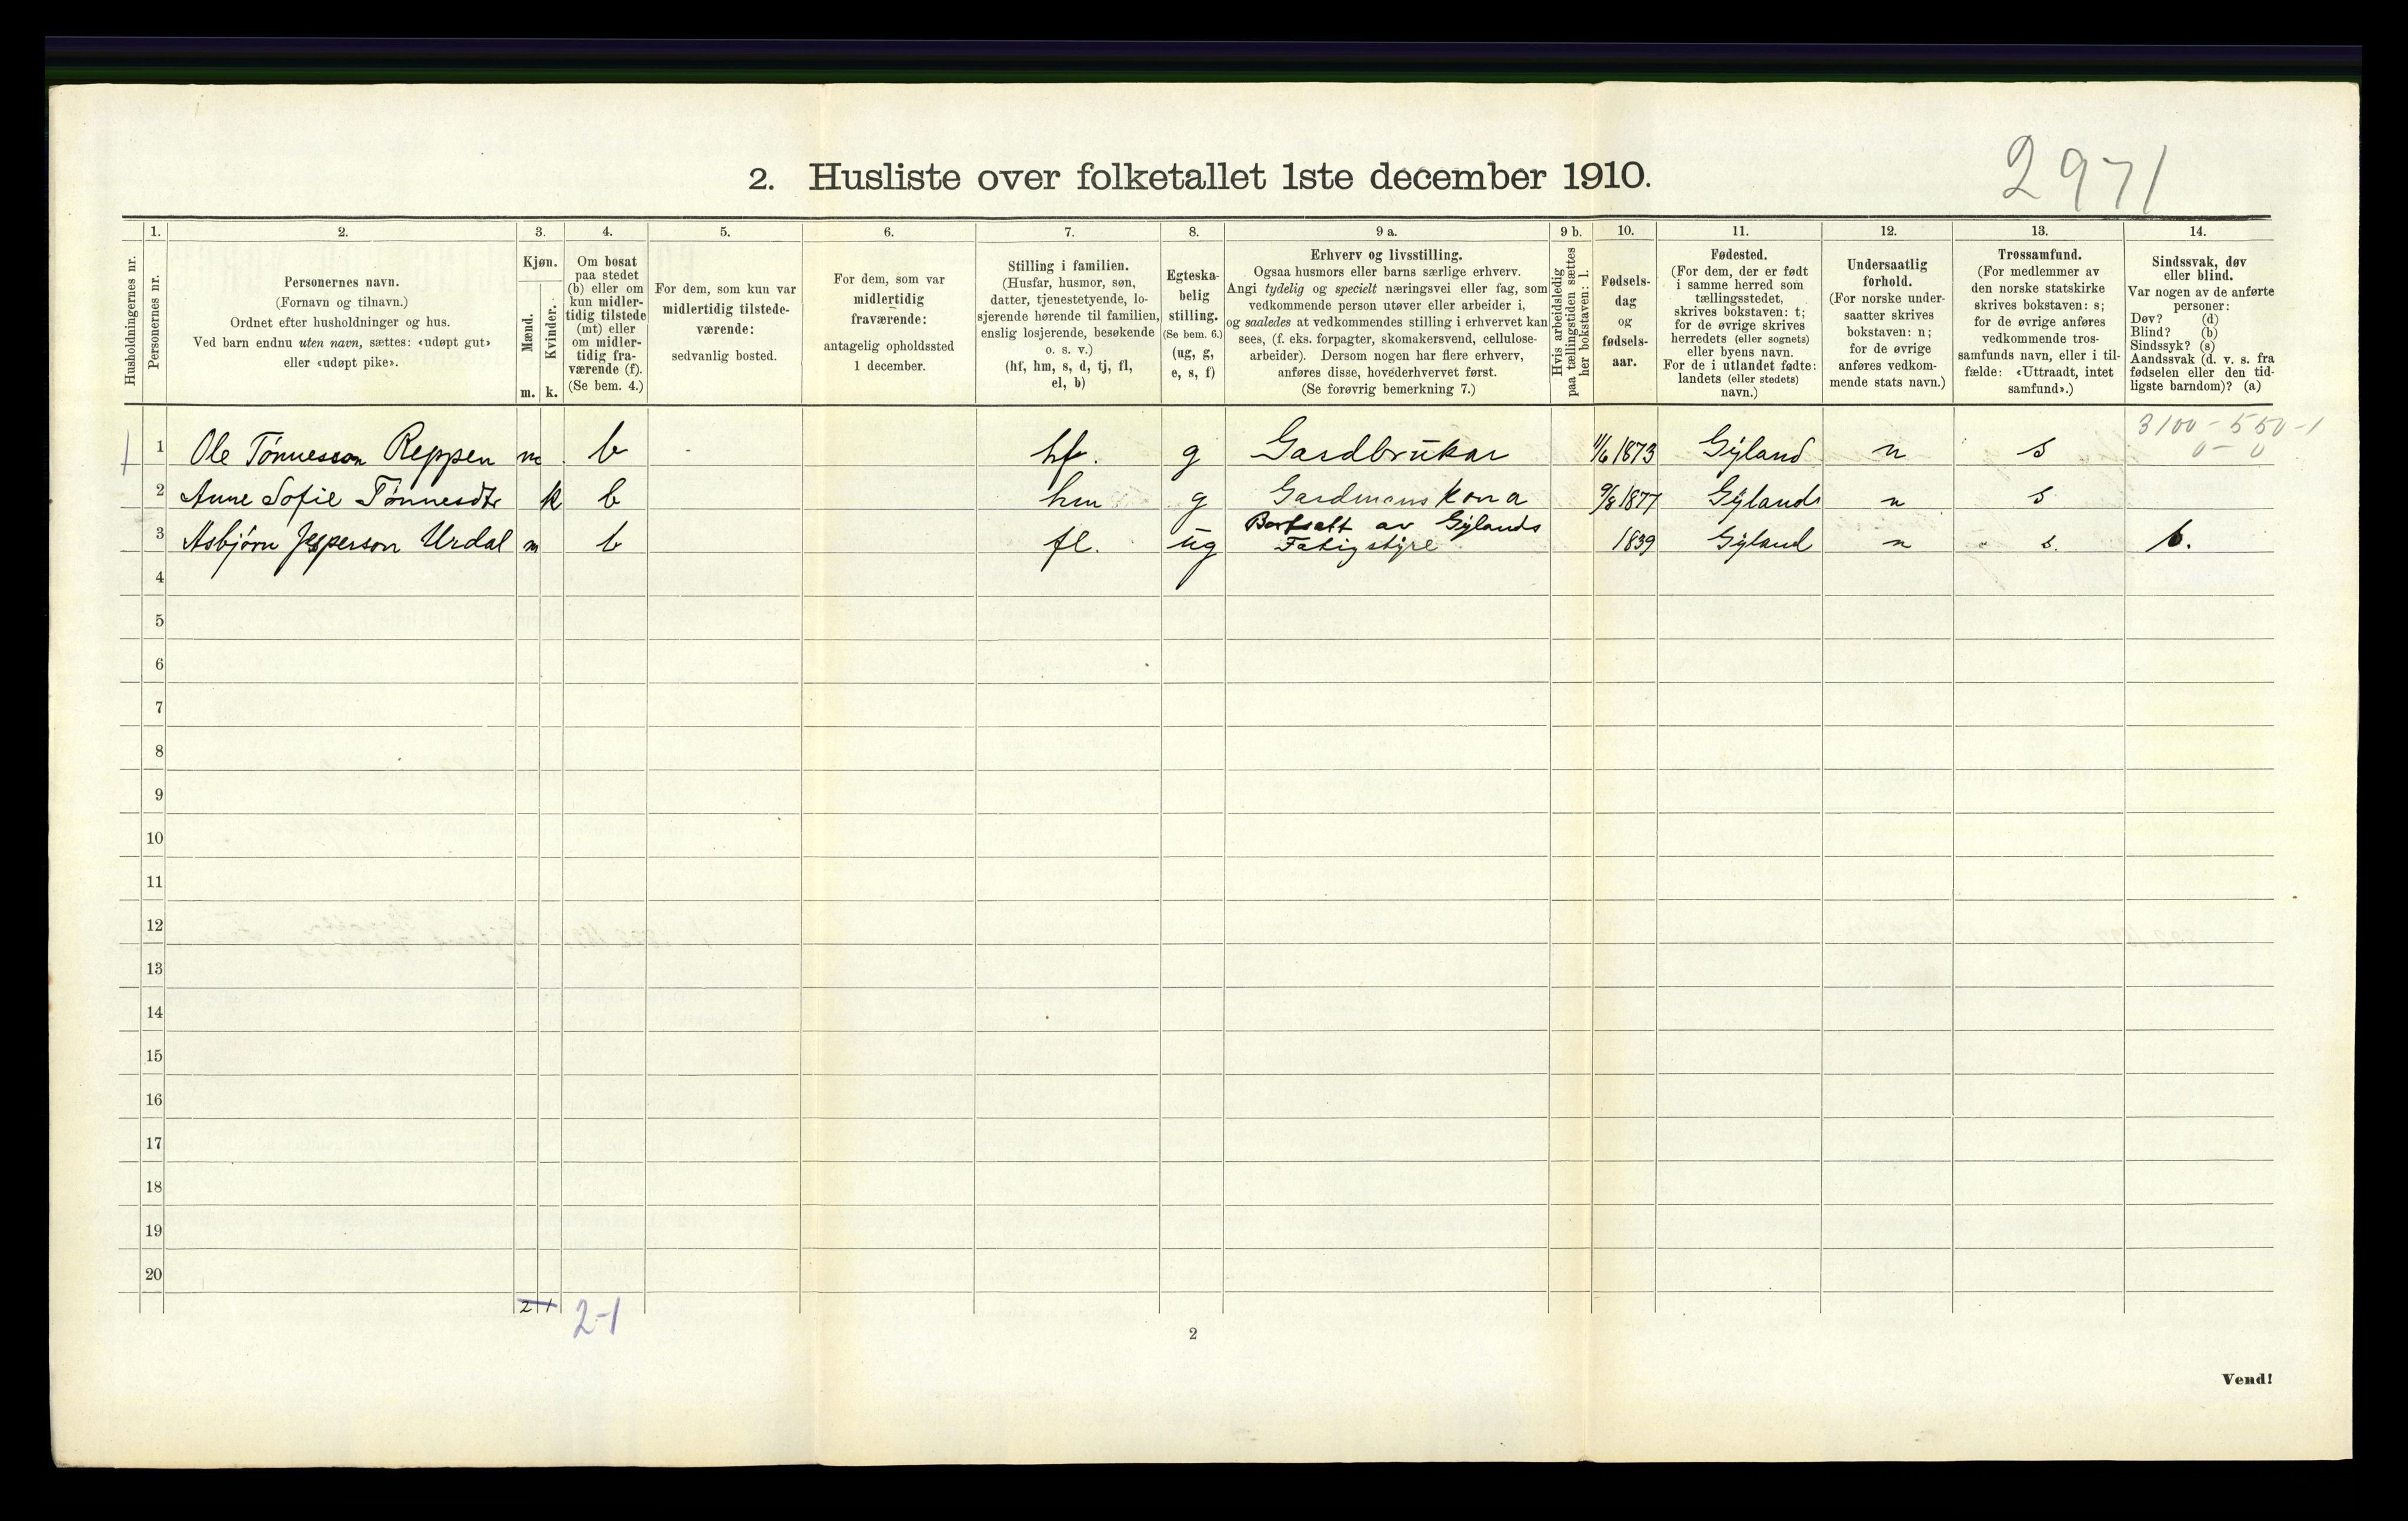 2971
2. Husliste over folketallet 1ste december 1910.
Husholdningernes nr.
1.
Personernes nr.
2.
Personernes navn.
(Fornavn og tilnavn.)
Ordnet efter husholdninger og hus.
Ved barn endnu uten navn, sættes: «udøpt gut»
eller «udøpt pike».
3.
Kjøn.
Mænd.
Kvinder.
m. k.
4.
Om bosat
paa stedet
(b) eller om
kun midler-
tidig tilstede
(mt) eller
om midler-
tidig fra-
værende (f).
(Se bem. 4.)
5.
For dem, som kun var
midlertidig tilstede-
værende:
sedvanlig bosted.
6.
For dem, som var
midlertidig
fraværende:
antagelig opholdssted
1 december.
7.
Stilling i familien.
(Husfar, husmor, søn,
datter, tjenestetyende, lo-
sjerende hørende til familien,
enslig losjerende, besøkende
o. s. v.)
(hf, hm, s, d, tj, fl,
el, b)
8.
Egteska-
belig
stilling.
(Se bem. 6.)
(ug, g,
e, s, f)
9 a.
Erhverv og livsstilling.
Ogsaa husmors eller barns særlige erhverv.
Angi tydelig og specielt næringsvei eller fag, som
vedkommende person utøver eller arbeider i,
og saaledes at vedkommendes stilling i erhvervet kan
sees, (f. eks. forpagter, skomakersvend, cellulose-
arbeider). Dersom nogen har flere erhverv,
anføres disse, hovederhvervet først.
(Se forøvrig bemerkning 7.)
9 b.
Hvis arbeidsledig
paa tællingstiden sættes
her bokstaven: l.
10.
Fødsels-
dag
og
fødsels-
aar.
11.
Fødested.
(For dem, der er født
i samme herred som
tællingsstedet,
skrives bokstaven: t;
for de øvrige skrives
herredets (eller sognets)
eller byens navn.
For de i utlandet fødte:
landets (eller stedets)
navn.)
12.
Undersaatlig
forhold.
(For norske under-
saatter skrives
bokstaven: n;
for de øvrige
anføres vedkom-
mende stats navn.)
13.
Trossamfund.
(For medlemmer av
den norske statskirke
skrives bokstaven: s;
for de øvrige anføres
vedkommende tros-
samfunds navn, eller i til-
fælde: «Uttraadt, intet
samfund».)
14.
Sindssvak, døv
eller blind.
Var nogen av de anførte
personer:
Døv? (d)
Blind? (b)
Sindssyk? (s)
Aandssvak (d. v. s. fra
fødselen eller den tid-
ligste barndom)? (a)
3100 - 550 - 1
0 - 0
1 1 Ole Tønnesson Reppen m b hf. g Gardbrukar 11/6 1873 Gyland n s
2 Anne Sofie Tønnesdtr k b hm g Gardmanskona 9/8 1877 Gylands n s
3 Asbjørn Jesperson Urdal m b fl. ug Bortsatt av Gylands
Fatigstyre 1839 Gyland n s. b.
4
5
6
7
8
9
10
11
12
13
14
15
16
17
18
19
20
2 1 2-1
2
Vend!